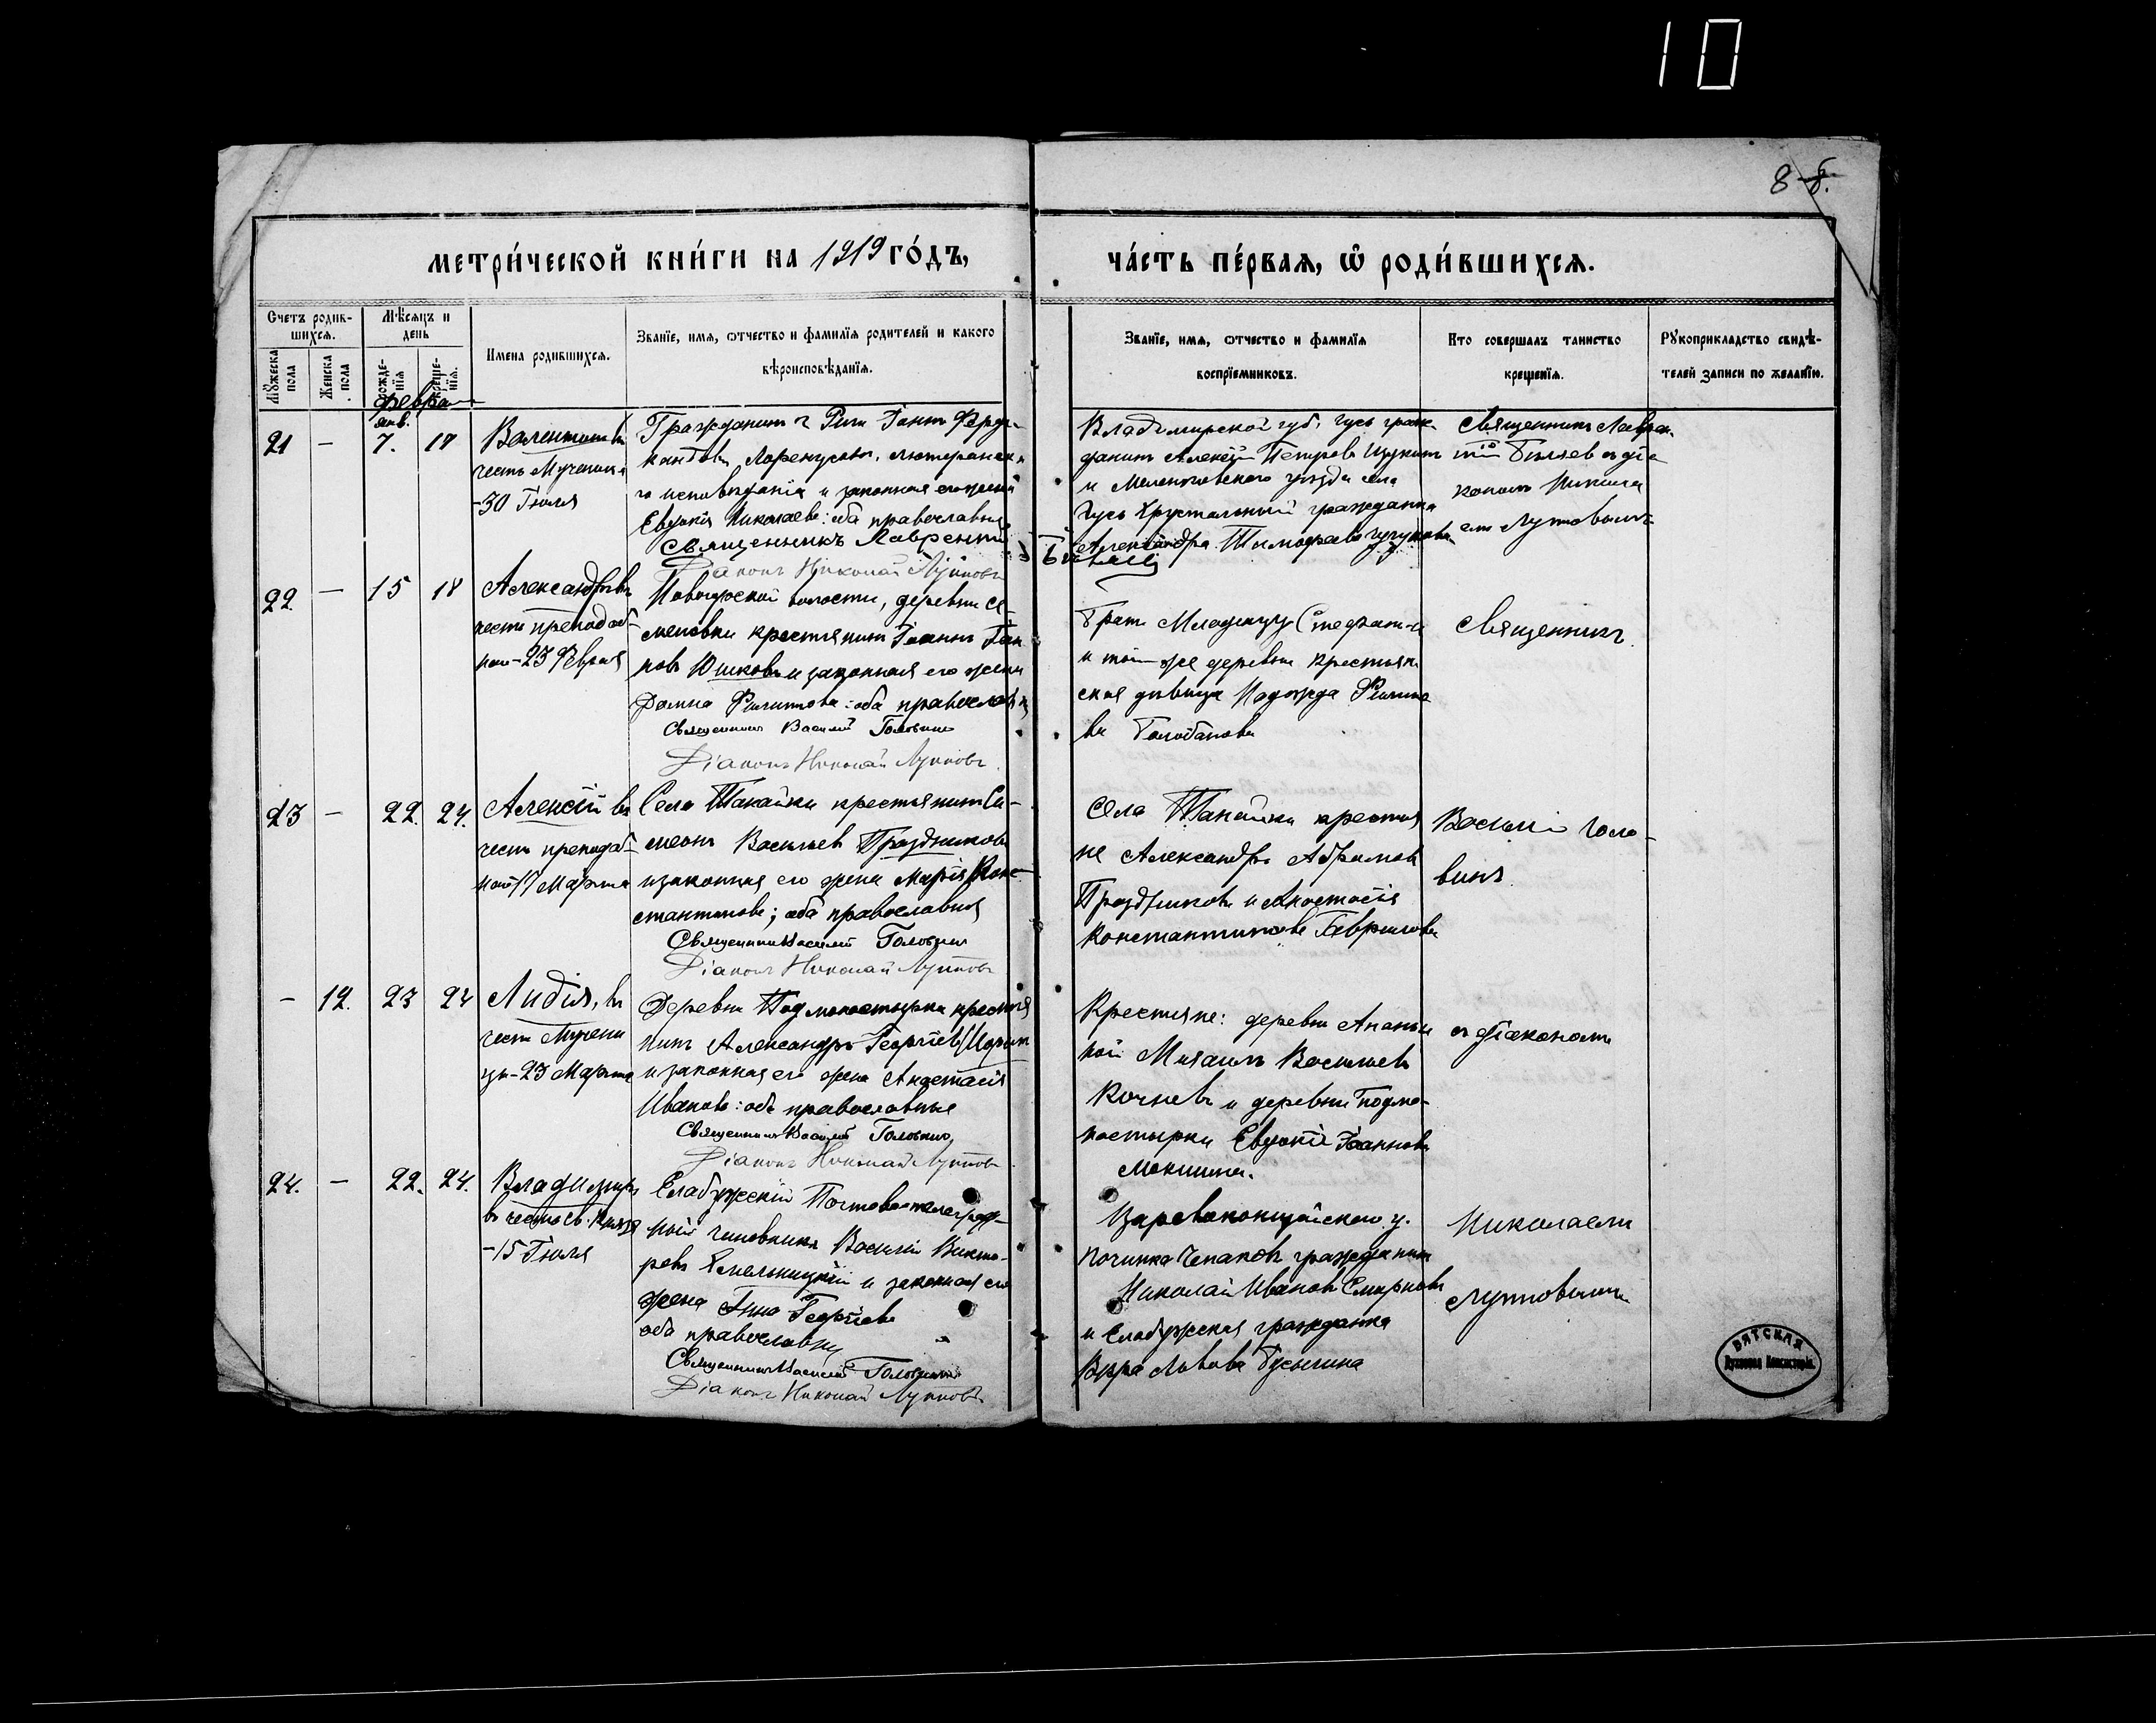 10
8
метри́ческой кни́ги на 1919 го́дъ,
ча́сть пе́рвая, ѡ҆ роди́вшихся.
Счетъ родив-
шихся.
Мѣсяцъ и
день
Мужеска пола
Женска пола
рожде-
нія
креще-
нія.
Имена родившихся.
Званіе, имя, ѡтчество и фамилія родителей и какого
вѣроисповѣданія.
Званіе, имя, ѡтчество и фамилія
воспріемниковъ.
Кто совершалъ таинство
крещенія.
Рукоприкладство свидѣ-
телей записи по желанію.
21 – 7. 18
честь Мученика
-30 Іюля
Гражданинъ г Риги
го исповѣданія и законная его жена
Евдокія Николаева: оба православные
Священникъ Лаврентій
Діаконъ Николай Лупповъ
Владимирской губ.
Алексій Петровъ
и Меленковскаго уезда села
Гусь Хрустальный гражданка
Александра Тимофеева
Священникъ Лаврен-
тій Бѣляевъ съ діа-
кономъ Никола
емъ Лупповымъ
22 – 15 18
Александръ въ
честь преподоб-
наго - 23 Февраля
волости, деревни Се-
меновки крестьянинъ Іоаннъ
Юшковъ и законная его жена
Домна Филиппова: оба православные
Священникъ Василій Головинъ
Діаконъ Николай Лупповъ
Братъ Младенцу Стефанъ
и той-же деревни крестьян
ская дѣвица Надежда
ва
Священникъ
23 – 22. 24.
Алексій въ
честь преподоб-
наго 17 Марта
Села Танайки крестьянинъ Си-
меонъ Васильевъ Праздниковъ
и законная его жена Марія Кон-
стантинова; оба православные
Священникъ Василій Головинъ
Діаконъ Николай Лупповъ
Села Танайки крестья
не Александръ Абрамовъ
Праздниковъ и Анастасія
Константинова Гаврилова
Василій Голо-
винъ
– 12. 23 24
Лидія, въ
честь Мучени
цы - 23 Марта
Деревни Подмонастырки крестья
нинъ Александръ Георгіевъ
и законная его жена Анастасія
Иванова: оба православные
Священникъ Василій Головинъ
Діаконъ Николай Лупповъ
Крестьяне: деревни Ананьи
ной Михаилъ Васильевъ
Кочневъ и деревни Подмо-
настырки Евдокія Іоаннова
Мокшина.
съ діакономъ
24. – 22. 24.
Владимиръ
въ честь св. Князя
-15 Іюля
Елабужскій Почтово-телеграф-
ный чиновникъ Василій Викто-
ровъ и законная его
жена Анна Георгіева
оба православны
Священникъ Василій Головинъ
Діаконъ Николай Лупповъ
Царевококшайскаго у.
починка гражданинъ
Николай Ивановъ Смирновъ
и Елабужская гражданка
Вѣра Львова
Николаемъ
Лупповымъ
ВЯТСКАЯ
Духовная Консисторія.